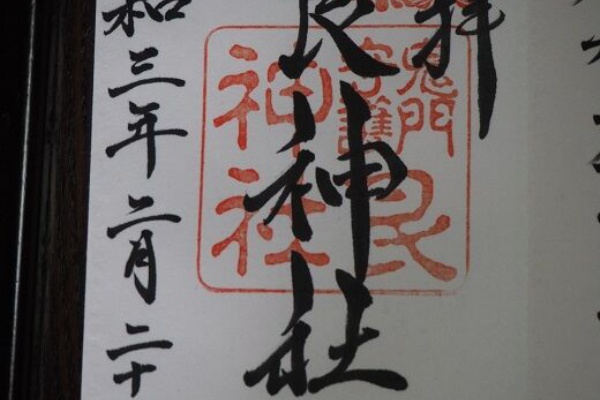 拝
艮神社
鬼門
守護
艮
神社
和三年二月二十